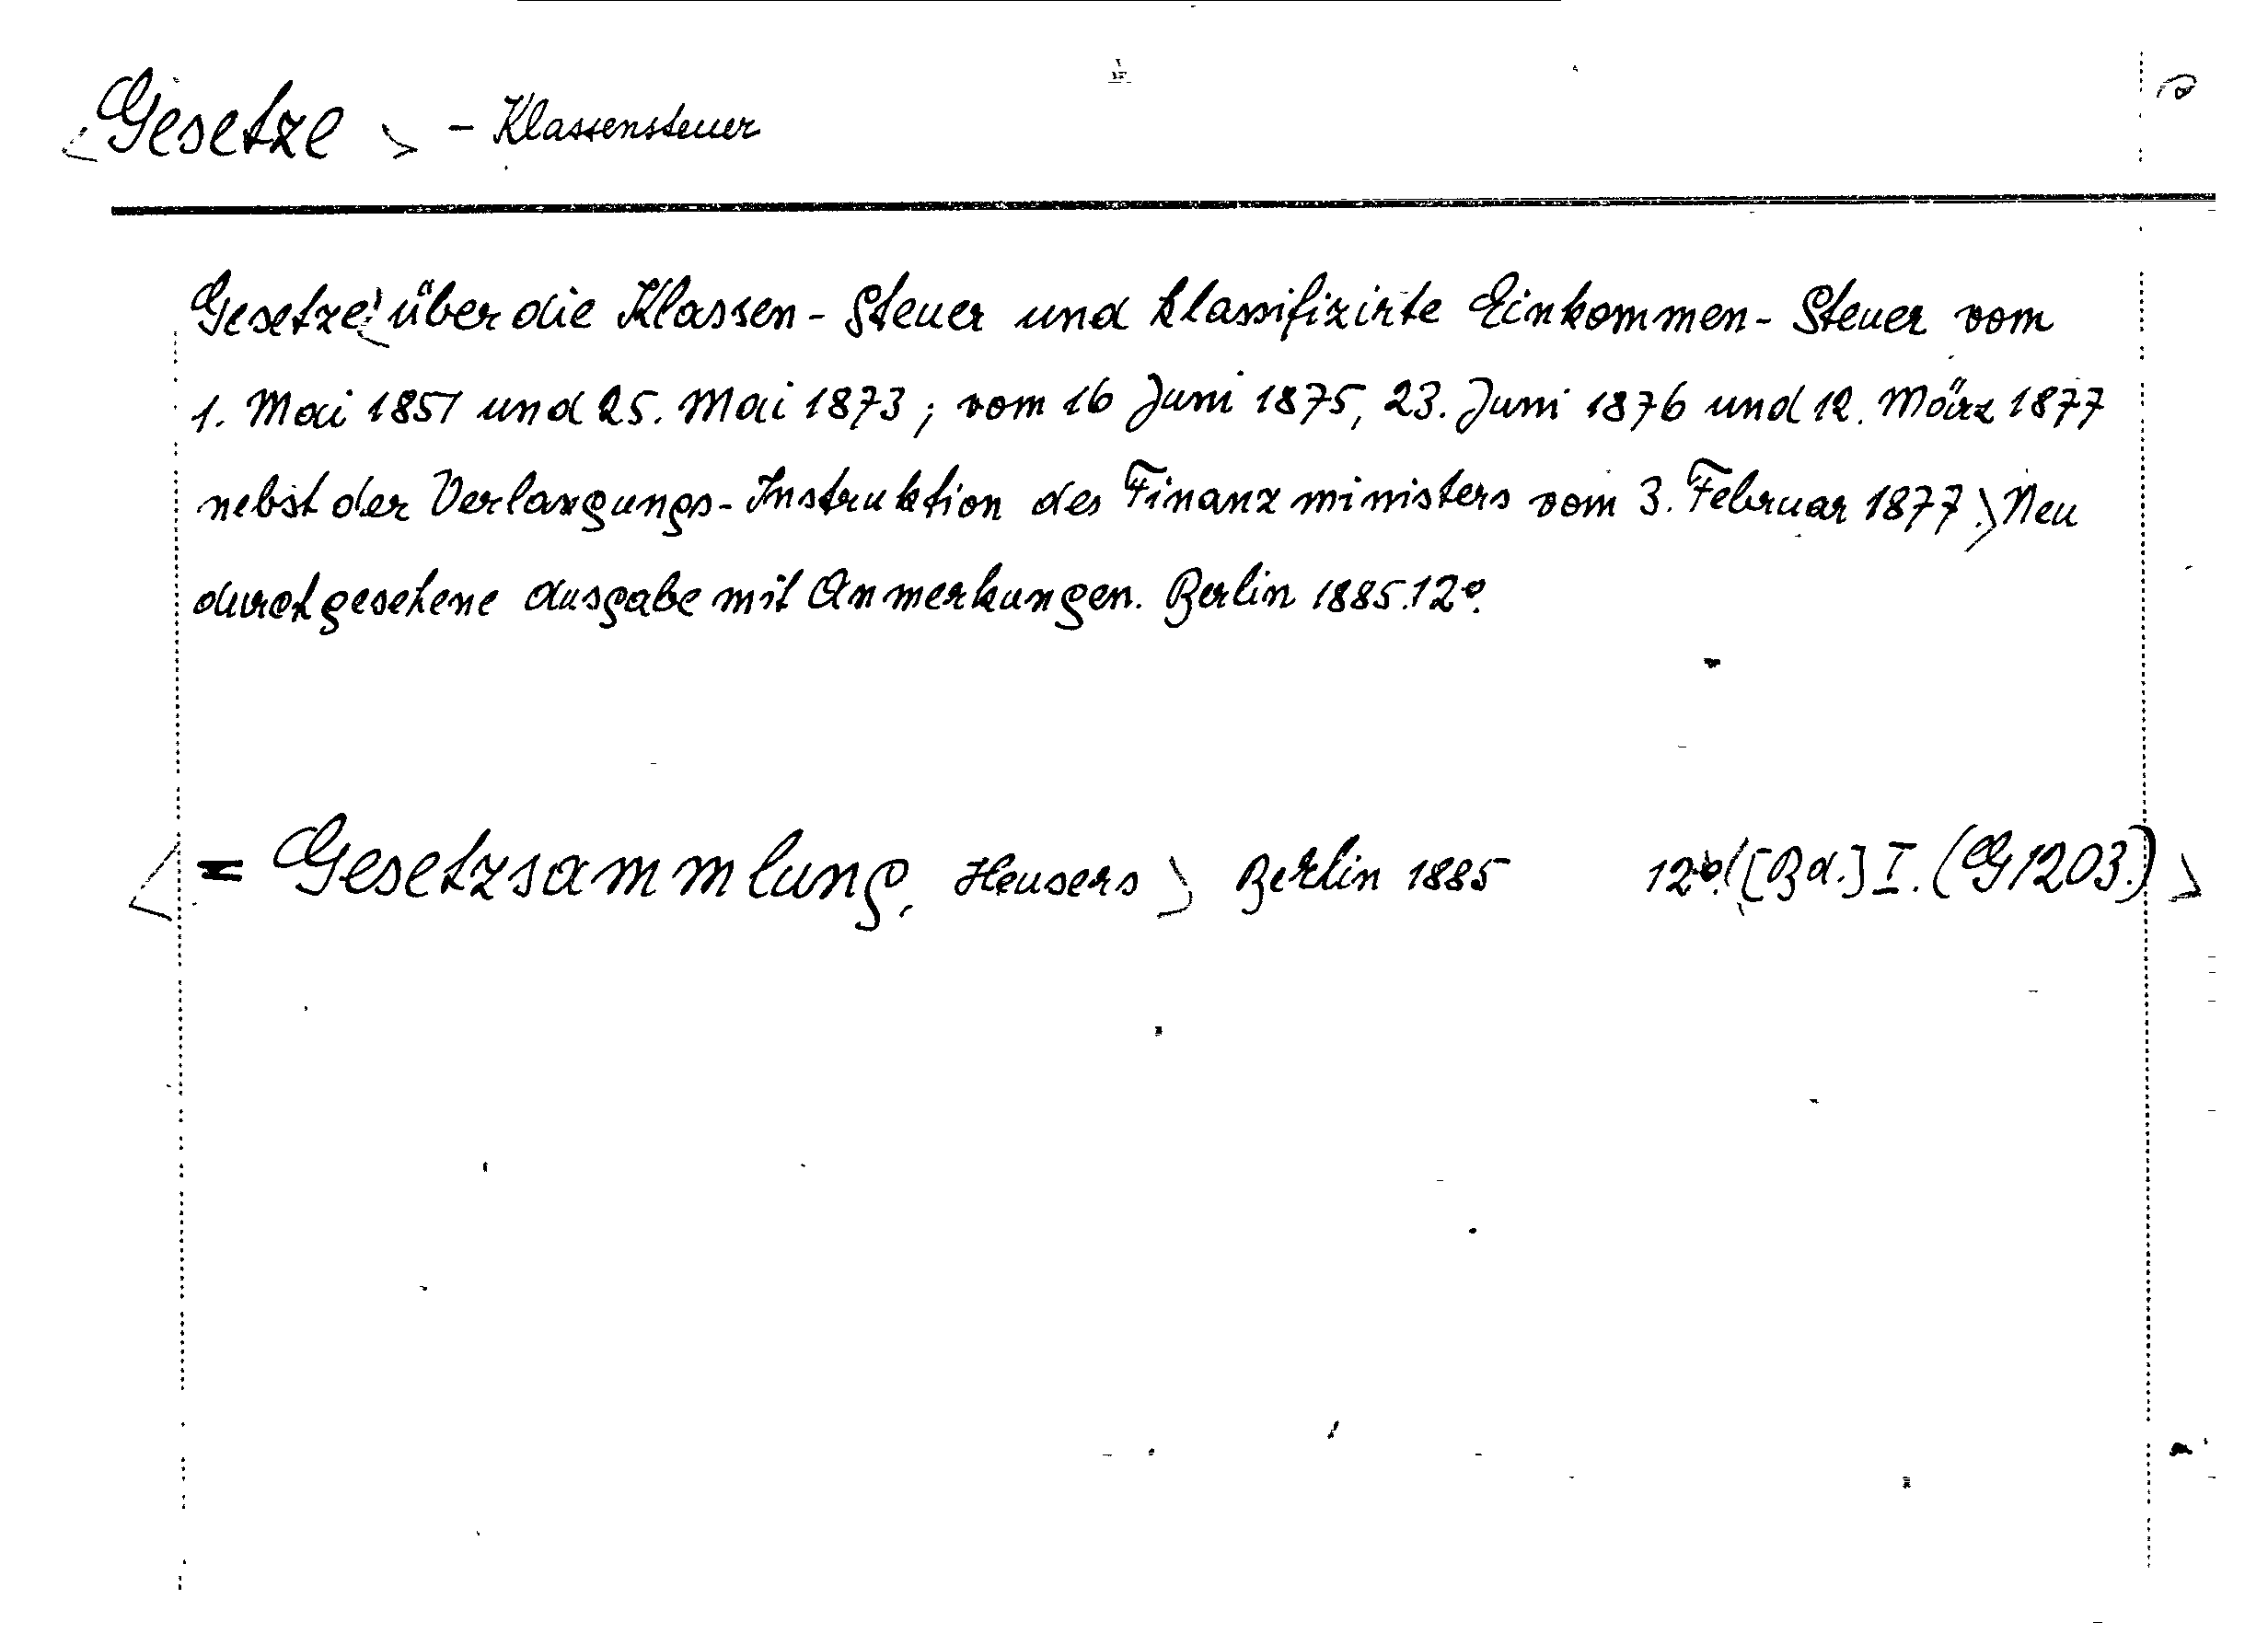 <Gesetze> - Klassensteuer
Gesetze <über die Klassen-Steuer und klassifizirte Einkommen-Steuer vom
1. Mai 1851 und 25. Mai 1873; vom 16 Juni 1875, 23. Juni 1876 und 12. März 1877
nebst der Verlangungs-Instruktion des Finanzministers vom 3. Februar 1877.> Neu
durchgesehene Ausgabe mit Anmerkungen. Berlin 1885. 12º.
<= Gesetzsammlung, Heusers> Berlin 1885 12º. <[Bd.] I. (G 1203.)>